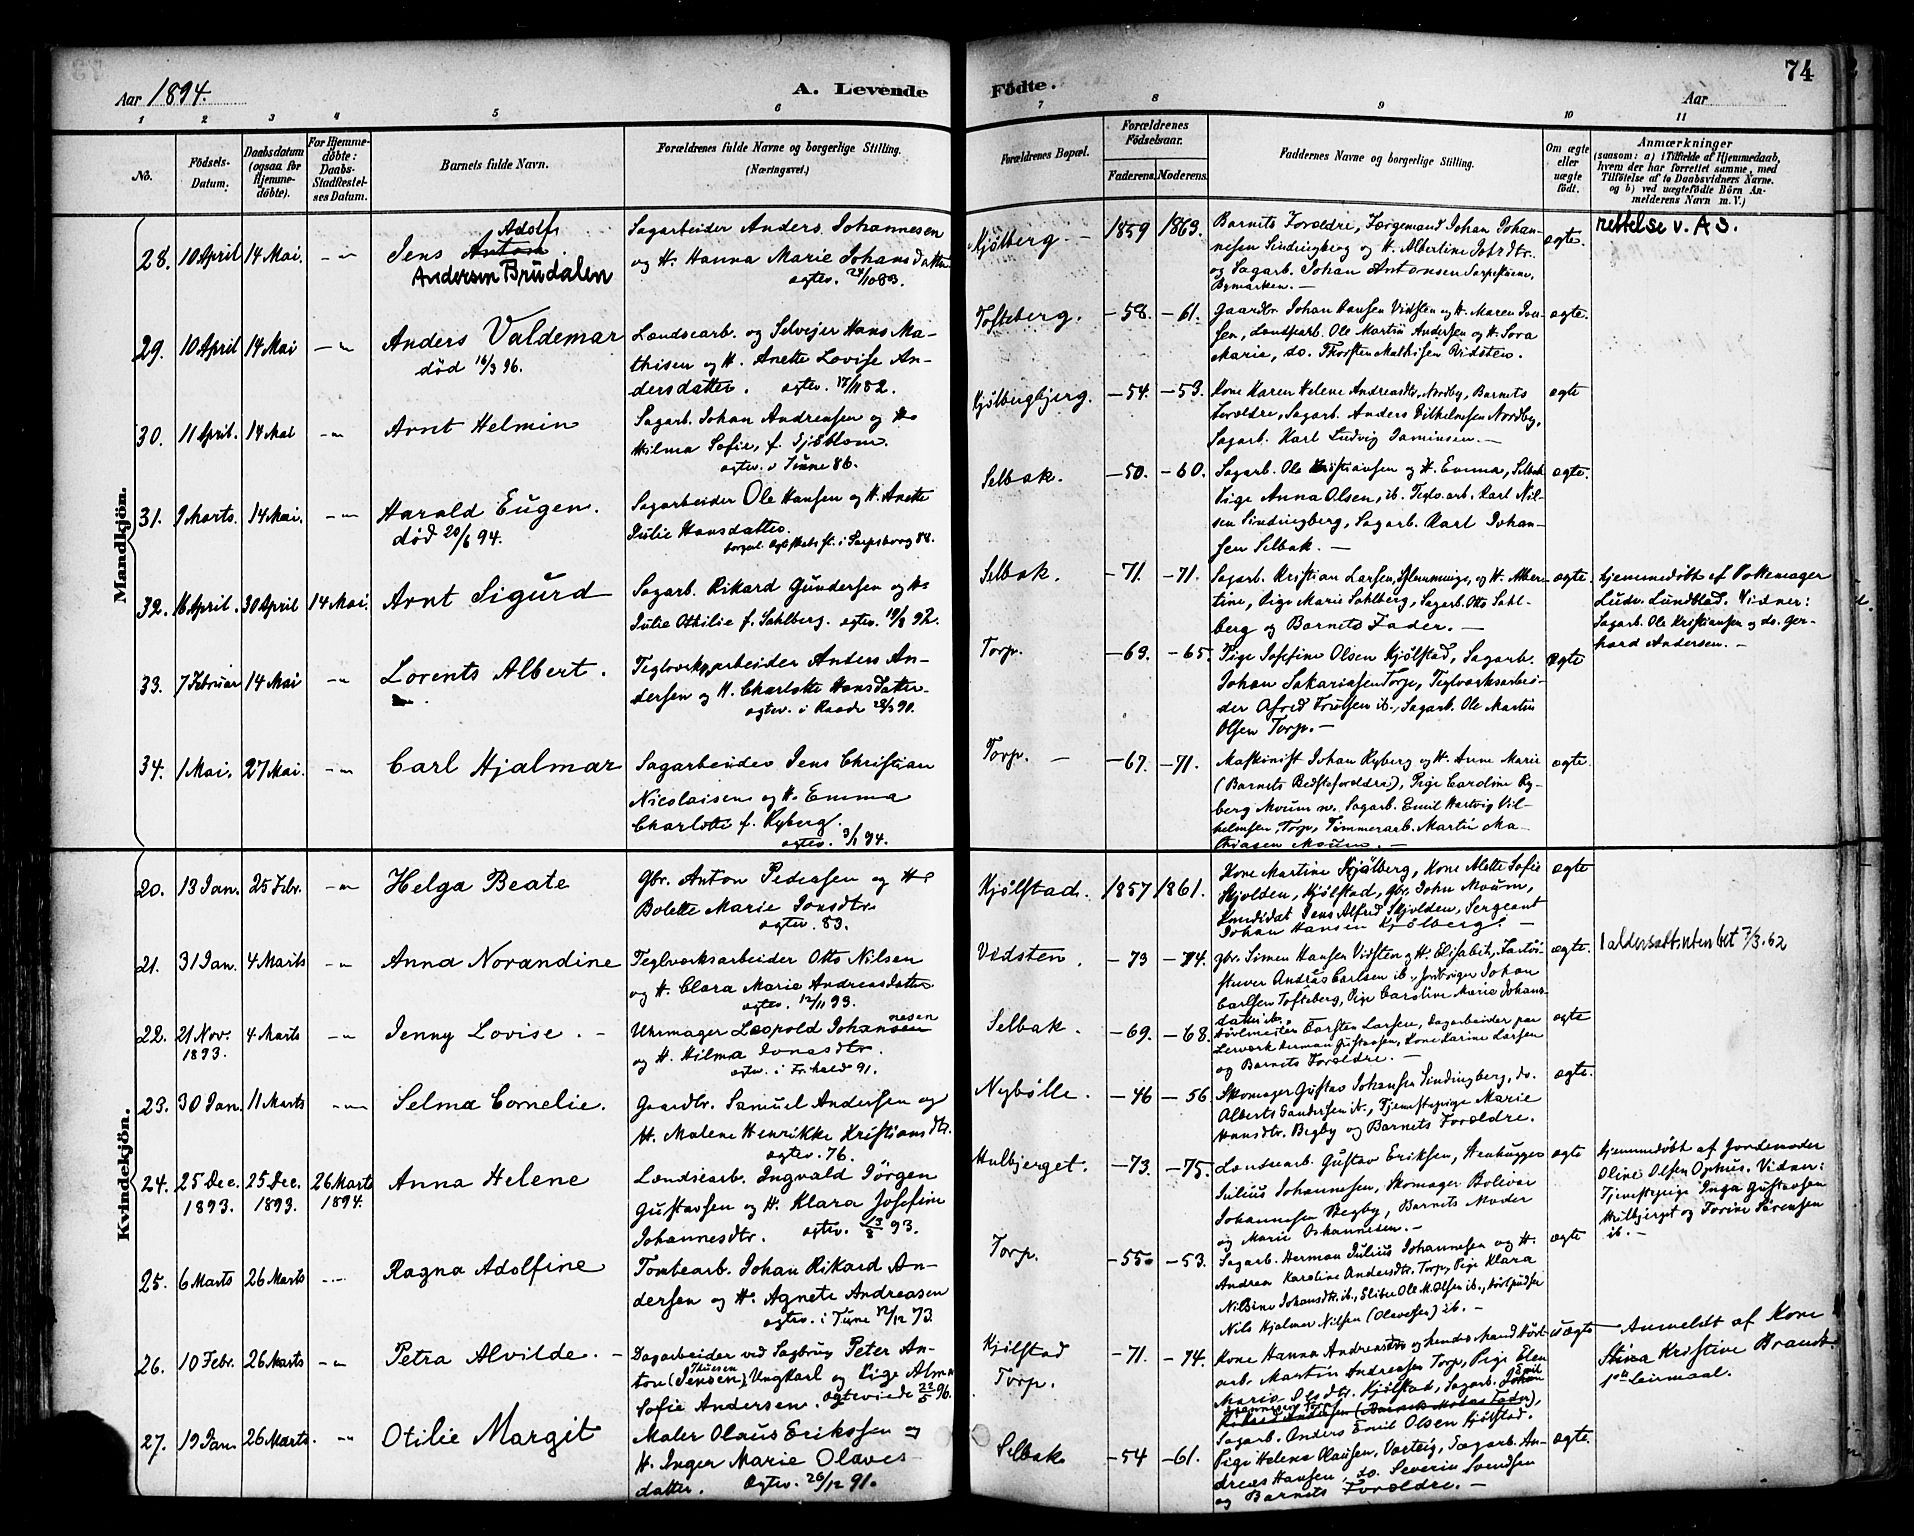 74
Aar 1894.
A. Levende
Fødte.
Aar
1 2 3 4 5 6 7 8 9 10 11
No.
Fødsels-Datum.
Daabsdatum (ogsaa for Hjemme-døbte).
For Hjemme-døbte: Daabs-Stadfæstel-ses Datum.
Barnets fulde Navn.
Forældrenes fulde Navne og borgerlige Stilling.
(Næringsvei.)
Forældrenes Bopæl.
Forældrenes Fødselsaar.
Faderens. Moderens.
Faddernes Navne og borgerlige Stilling.
Om ægte eller uægte født.
Anmærkninger
(saasom: a) i Tilfælde af Hjemmedaab,
hvem der har forrettet samme, med
Tilføielse af to Daabsvidners Navne.
og b) ved uægtefødte Børn An-
melderens Navn m. V.)
Mandkjön.
28. 10 April 14 Mai. Jens Anton Adolf
Andersen Brudalen
Sagarbeider Anders Johannesen
og H. Hanna Marie Johans datter
Kjølberg. 1859 1863.
Barnets Forældre, Færgemand Johan Johan-
nesen Sindingberg og H. Albertine
og Sagarb. Johan Antonsen
Bymarken. —
ægte.
rettelse v. A S.
29. 10 April 14 Mai Anders Valdemar
død 16/3 96.
Landsearb. og Selveier Hans Ma-
thisen og H. Anette Lovise An-
dersdatter.
Tofteberg. —58. —61.
Gaardbr. Johan Hansen Vidsten og H. Maren
Ole Martin Andersen og H.
Maria, do. Thorsten Mathisen Vidsten.
ægte.
30. 11 April. 14 Mai Arnt Helmin
Sagarb. Johan Andreasen og H.
Hilma Sofie, f. Sjöblom.
ægtev. i Tune 86.
Kjølbergbjerg. —54. —53.
Kone Karen Helene Andreasdtr. Nordby, Barnets
Forældre, Sagarb. Anders Vilhelmsen Nordby,
Sagarb. Karl Ludvig
ægte
31. 9 Marts. 14 Mai. Harald Eugen.
død 20/6 94.
Sagarbeider Ole Hansen og H. Anette
Julie Hansdatter.
i Sarpsborg 88.
Selbak. —50. —60.
Sagarb. Ole Kristiansen og H. Emma, Selbak
Pige Anna Olsen, ib. Teglv.arb. Karl Nil-
sen Sindingberg, Sagarb. Karl Johan-
sen Selbak. —
ægte.
32. 16 April. 30 April 14 Mai. Arnt Sigurd
Sagarb. Rikard Gundersen og H.
Julie Othilie f. Sahlberg.
Selbak. —71. —71.
Sagarb. Kristian Larsen, og H. Alber-
tine, Pige Marie Sahlberg, Sagarb. Otto Sahl-
berg og Barnets Fader. —
ægte.
hjemmedøbt af Pottemager
Ludv. Lundblad. Vidner:
Sagarb. Ole Kristiansen og do. Ger-
hard Andersen. —
33. 7 Februar 14 Mai Lorents Albert.
Teglværksarbeider Anders An-
dersen og H. Charlotte Hansdatter.
ægtev. i Raade
Torp. —69. —65.
Pige Josefine Olsen Kjølstad, Sagarb.
Johan Sakariasen Torp, Teglværksarbei-
der ib., Sagarb. Ole Martin
Olsen Torp. —
ægte
34. 1 Mai. 27 Mai. Carl Hjalmar
Sagarbeider Jens Christian
Nicolaisen og H. Emma
Charlotte f. Ryberg.
ægtev. 3/1 94.
Torp. —67. —71.
Maskinist Johan Ryberg og H. Anne Marie
(Barnets Bedsteforældre), Pige Caroline Ry-
berg Moum Sagarb. Emil Hartvig Vil-
helmsen, Torp, Tømmerarb. Martin Ma-
thiasen Moum. —
ægte.
Kvindekjön.
20. 13 Jan. 25 Febr. Helga Beate
Gbr. Anton Pedersen og H.
Bolette Marie Jonsdtr.
ægtev. 83.
Kjølstad. 1857 1861.
Kone Martine Kjølberg, Kone Alette Sofie
Skjolden, Kjølstad, gbr. John Moum,
Kandidat Jens Alfred Skjolden, Sergeant
Johan Hansen Kjølberg. —
ægte
21. 31 Jan. 4 Marts Anna Norandine
Teglværksarbeider Otto Nilsen
og H. Clara Marie Andreasdatter
ægtev. 12/11 93.
Vidsten. —73 —74.
gbr. Simen Hansen Vidsten og H. Elisabet,
Andreas Carlsen ib., Johan
Carlsen Tofteberg, Pige Caroline Marie Johans-
datter ib.
ægte.
1 aldersatt. utenbet 7/3.62
22. 21 Nov. 1893. 4 Marts Jenny Lovise. —
Uhrmager Leopold Johannesen
og H. Hilma Jonasdtr.
ægtev. i Fr.hald 91.
Selbak. —69. —68.
Carsten Larsen, Sagarbeider
Herman Gustavsen, Kone Karine Larsen
og Barnets Forældre. —
ægte
23. 30 Jan. 11 Marts Selma Cornelie.
Gaardbr. Samuel Andersen og
H. Malene Henrikke Kristians dtr.
ægtev. 76.
Nybølle. —46 —56
Skomager Gustav Johansen Sindingberg, do.
Albert ib., Tjenestepige Marie
Hansdtr. Begby og Barnets Forældre.
ægte.
24. 25 Dec. 1893. 25 Dec. 1893. 26 Marts 1894. Anna Helene
Landsearb. Ingvald Jörgen
Gustavsen og H. Klara Josefine
Johannesdtr. ægtev. 13/8 93.
Hulbjerget. —73. —75.
Landsearb. Gustav Eriksen, Stenhugger
Julius Johannesen, Skomager Bolivar
Johannesen Begby, Barnets Moder
og Marie Johannesen. —
ægte
hjemmedøbt af Jordemoder
Oline Olsen Ophus. Vidner:
Tjenestepige Inga Gustavsen
Hulbjerget og Torine Sørensen
ib. —
25. 6 Marts 26 Marts Ragna Adolfine
Tomtearb. Johan Rikard An-
dersen og H. Agnete Andreasen
ægtev. i Tune 12/12 73.
Torp. —55. —53.
Sagarb. Herman Julius Johannesen og H.
Andrea Karoline Andersdtr. Torp, Pige Klara
Nilsine Johansdtr. ib., Ole M. Olsen ib.,
Nils Hjalmar Nilsen (Olavesen) ib. —
ægte
26. 10 Febr. 26 Marts Petra Alvilde. —
Dagarbeider ved Sagbrug Peter An-
ton (Jensen) Thuesen Ungkarl og Pige Alma
Sofie Andersen. ægteviede 22/5 96.
Kjølstad
Torp. —71. —74.
Kone Hanna Andreasdtr. og hendes Mand
arb. Martin Andreasen Torp, Pige Elen
Marie Olsdtr. Kjølstad, Sagarb. Johan
Sagarb. Anders Emil Olsen Kjølstad.
uægte
Anmeldt af Kone
Stina Kristine Brandt
1ste Leiermaal.
27. 19 Jan. 26 Marts. Otilie Margit
Maler Olaus Erikssen og
H. Inger Marie Olaves-
datter. Ægtev. 26/12 91.
Selbak —54 —61.
Pige Helene Olausen, Varteig, Sagarb. An-
dreas Hansen, do. Severin Svendsen
og Barnets Forældre. —
ægte.